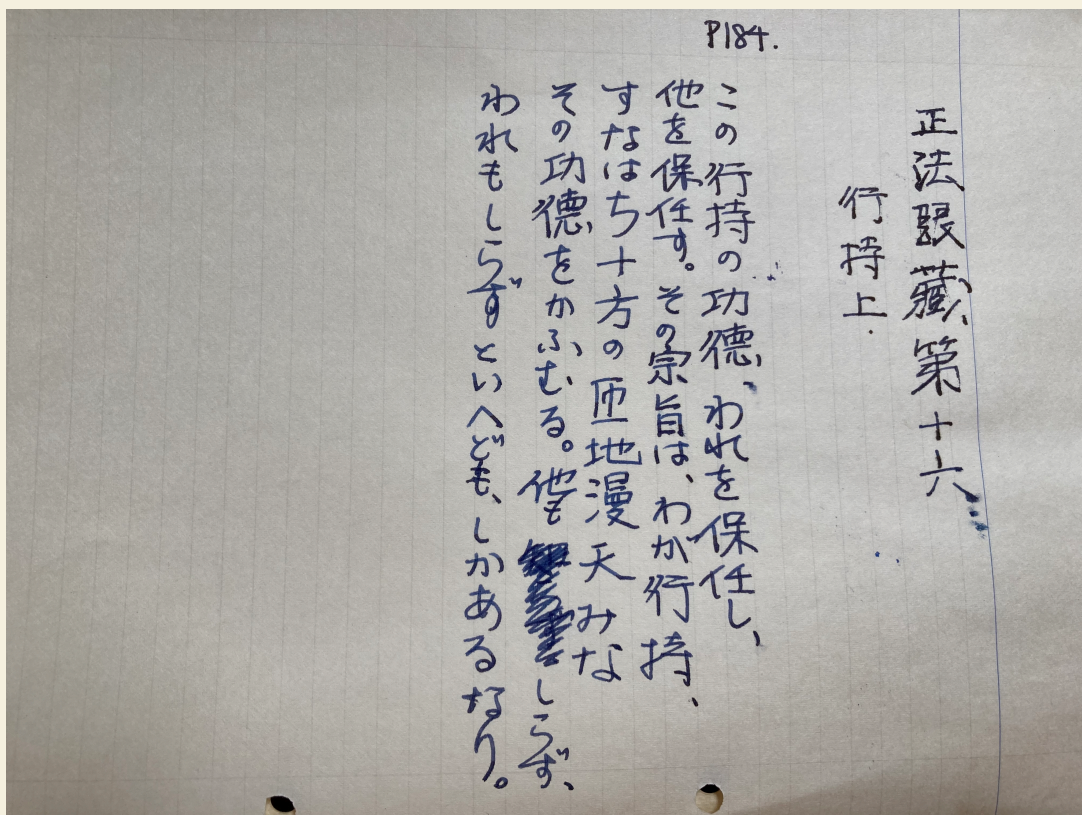 P184.
正法眼藏第十六
行持上.
この行持の功德、われを保任し、
他を保任す。その宗旨は、わが行持、
すなはち十方の匝地漫天みな
その功德をかふむる。他もしらず、
われもしらずといへども、しかあるなり。